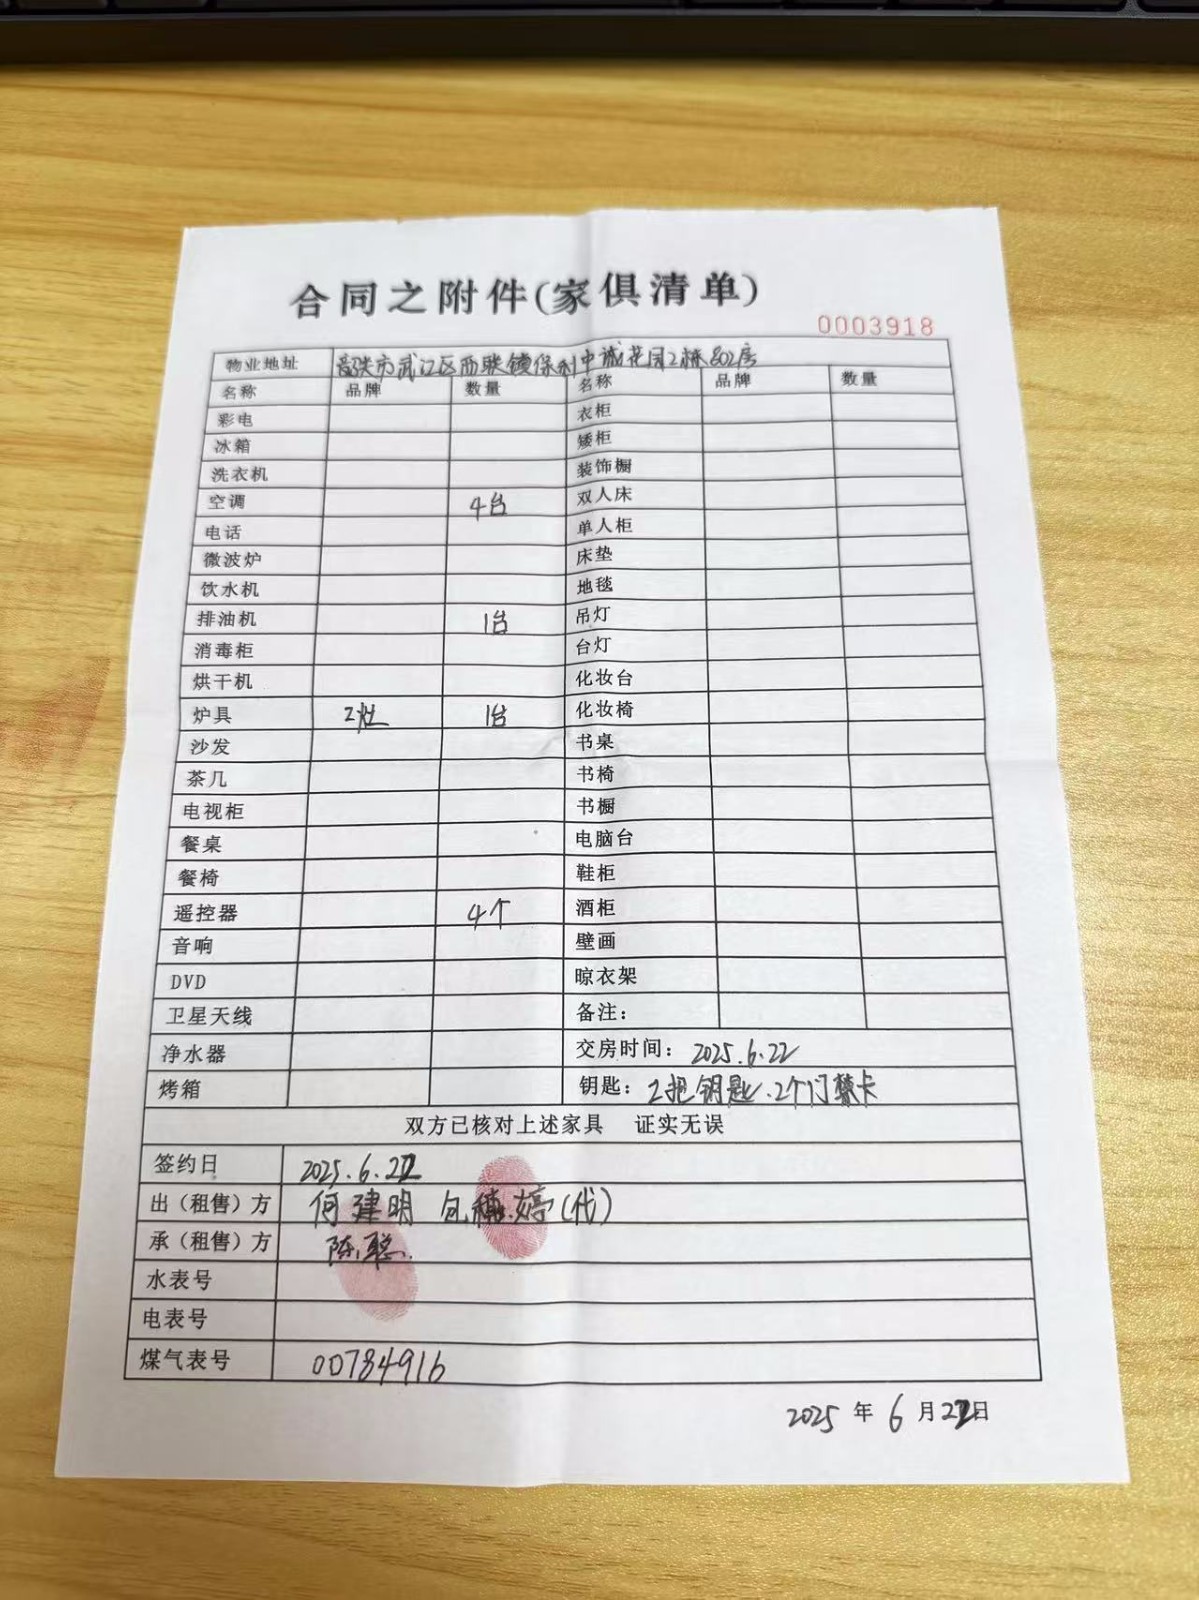 合同之附件(家俱清单)
0003918
物业地址 韶关市武江区西联镇保利中诚花园2栋802房
名称 品牌 数量 名称 品牌 数量
彩电 衣柜
冰箱 矮柜
洗衣机 装饰橱
空调 4台 双人床
电话 单人柜
微波炉 床垫
饮水机 地毯
排油机 1台 吊灯
消毒柜 台灯
烘干机 化妆台
炉具 2灶 1台 化妆椅
沙发 书桌
茶几 书椅
电视柜 书橱
餐桌 电脑台
餐椅 鞋柜
遥控器 4个 酒柜
音响 壁画
DVD 晾衣架
卫星天线 备注：
净水器 交房时间：2025.6.22
烤箱 钥匙：2把钥匙.2个门禁卡
双方已核对上述家具 证实无误
签约日 2025.6.22
出（租售）方 何建明 包 婷(代)
承（租售）方 陈聪.
水表号
电表号
煤气表号 00784916
2025 年 6 月 22日